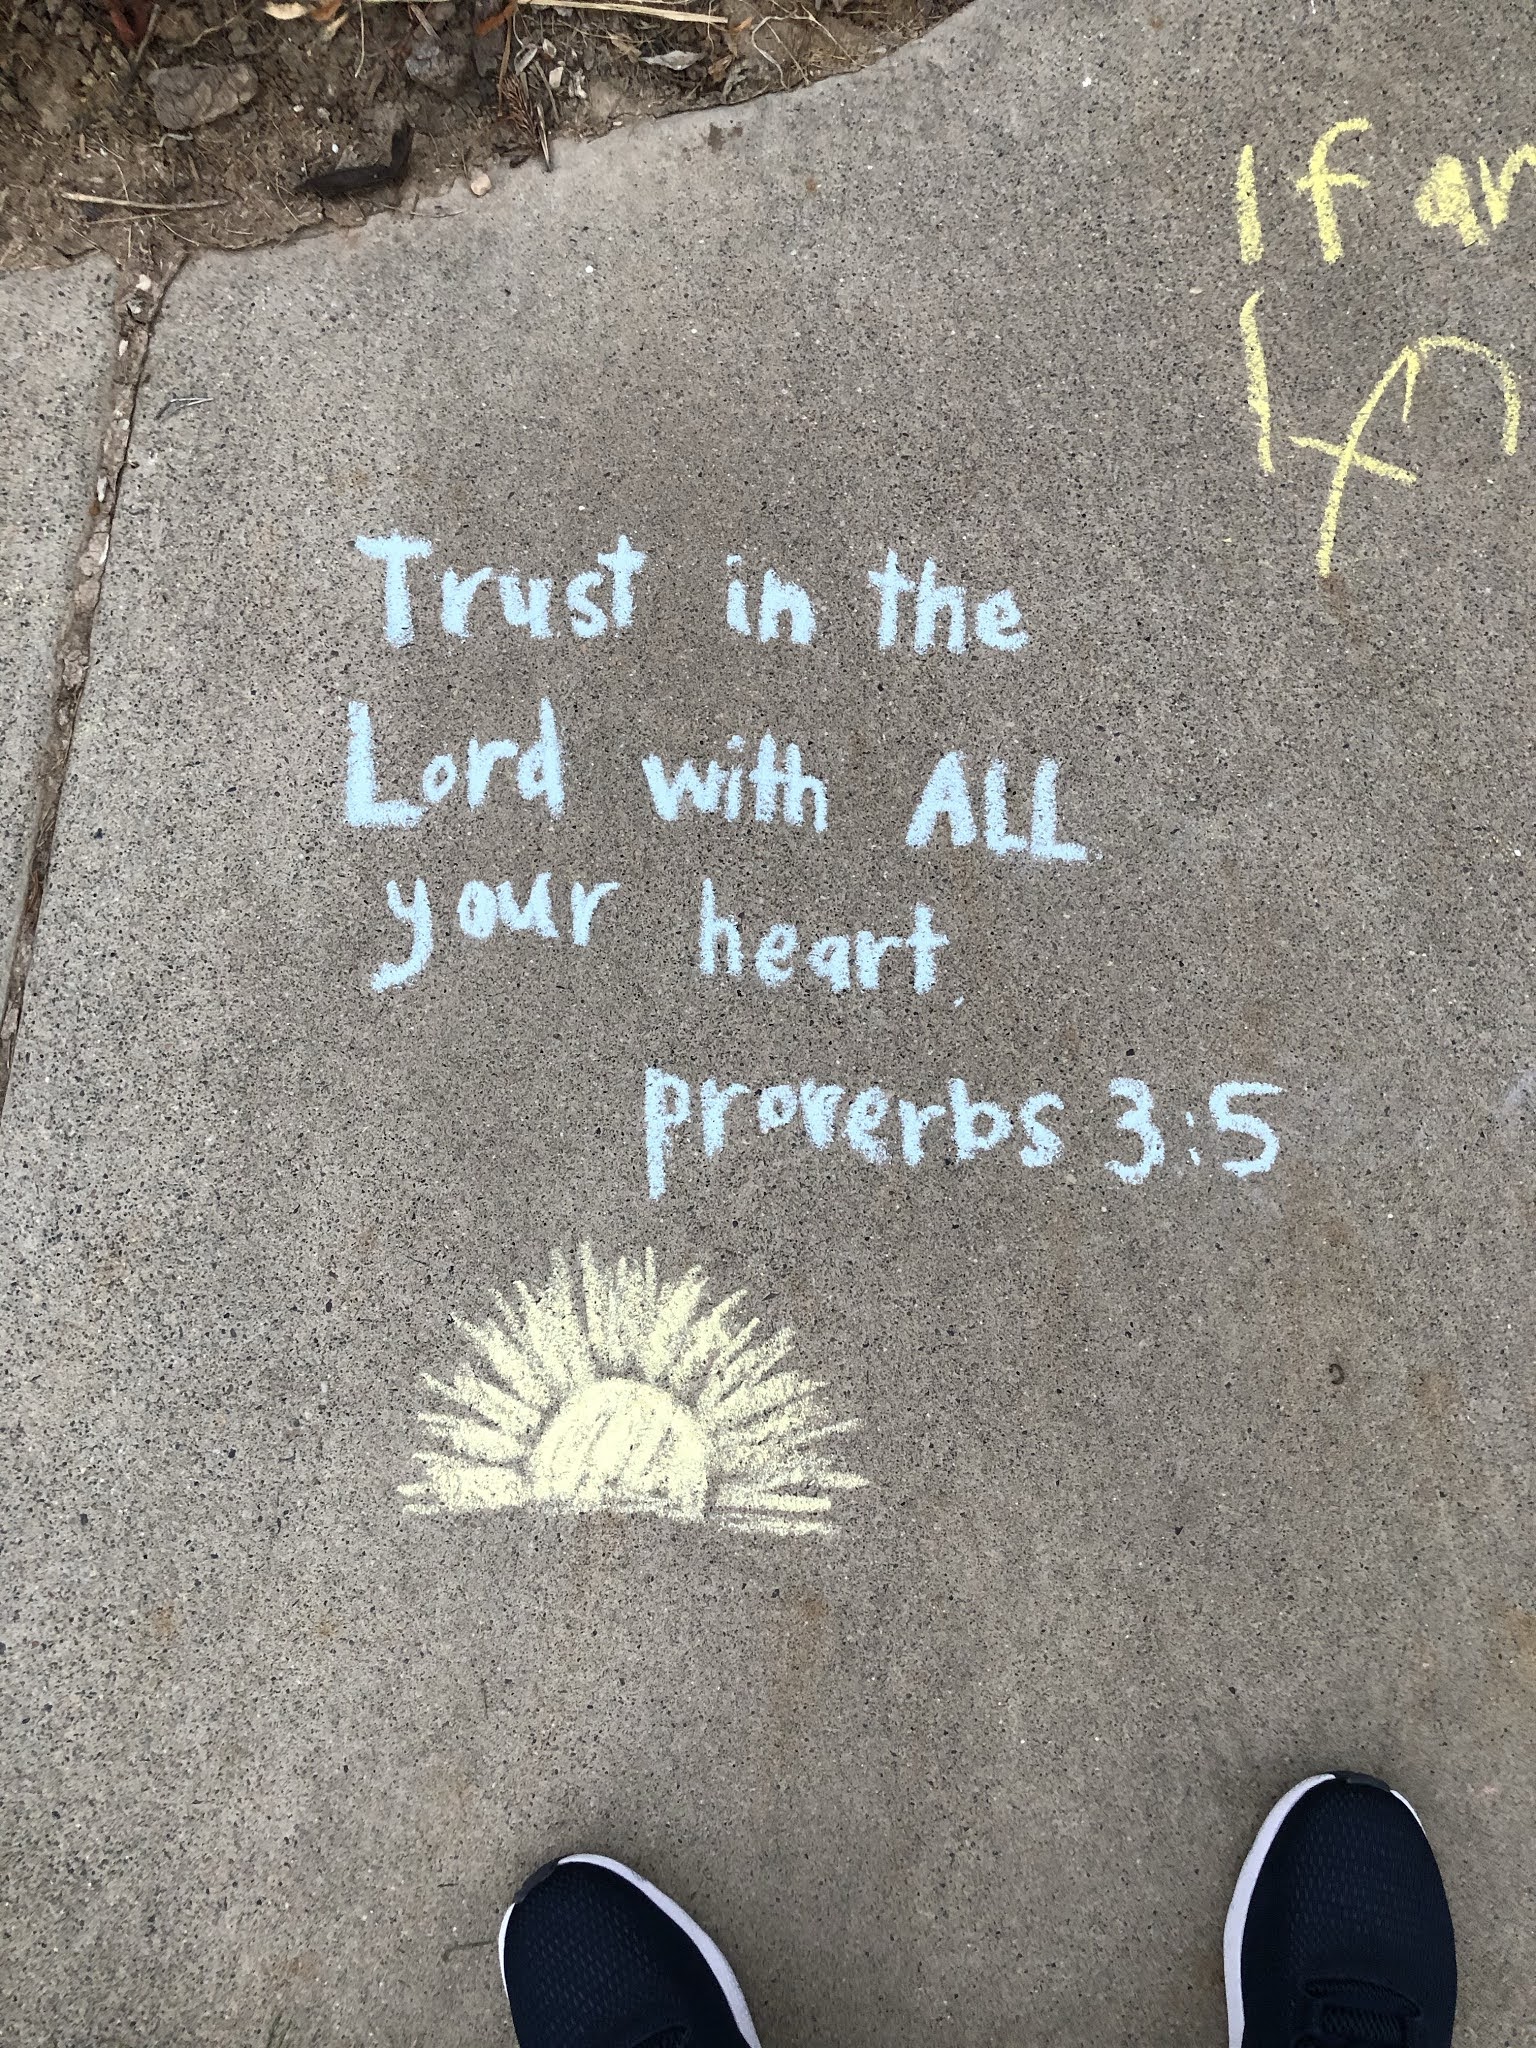 If
Trust in the
Lord with ALL
your heart.
proverbs 3:5